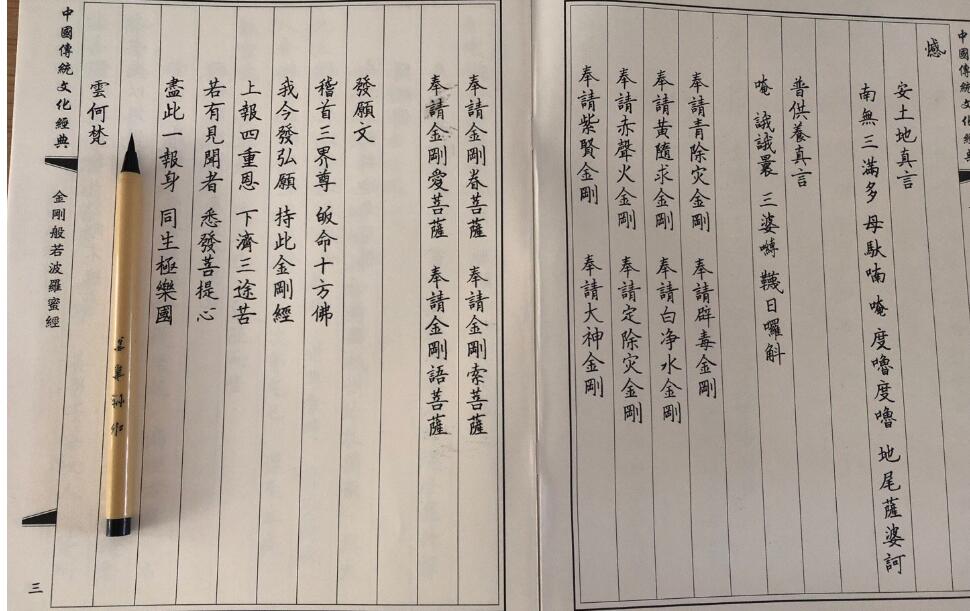 中國傳統文化經典
憾
安土地真言
南無三滿多 母馱喃 唵 度嚕度嚕 地尾薩婆訶
普供養真言
唵 誐誐曩 三婆嚩 韈日囉斛
奉請青除灾金剛 奉請辟毒金剛
奉請黃隨求金剛 奉請白净水金剛
奉請赤聲火金剛 奉請定除灾金剛
奉請紫賢金剛 奉請大神金剛
奉請金剛眷菩薩 奉請金剛索菩薩
奉請金剛愛菩薩 奉請金剛語菩薩
發願文
稽首三界尊 皈命十方佛
我今發弘願 持此金剛經
上報四重恩 下濟三途苦
若有見聞者 悉發菩提心
盡此一報身 同生極樂國
雲何梵
中國傳統文化經典
金剛般若波羅蜜經
三